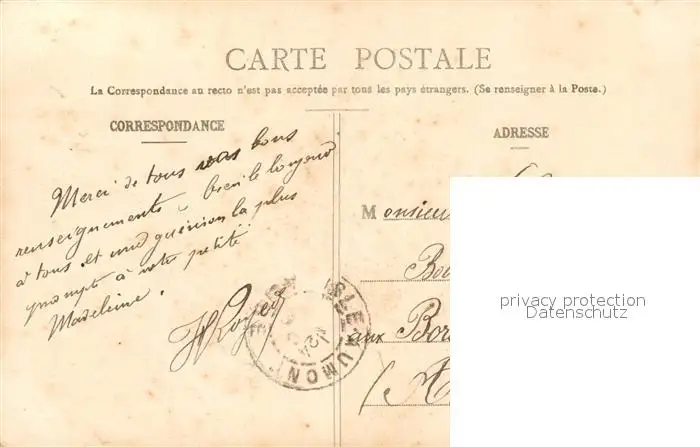 CARTE POSTALE
La Correspondance au recto n'est pas acceptée par tous les pays étrangers. (Se renseigner à la Poste.)
CORRESPONDANCE
Merci de tous vos bons
renseignements, bien le bonjour
à tous et une guérison la plus
prompte à votre petite
Madeleine.
ADRESSE
Monsieur
aux
privacy protection
Datenschutz